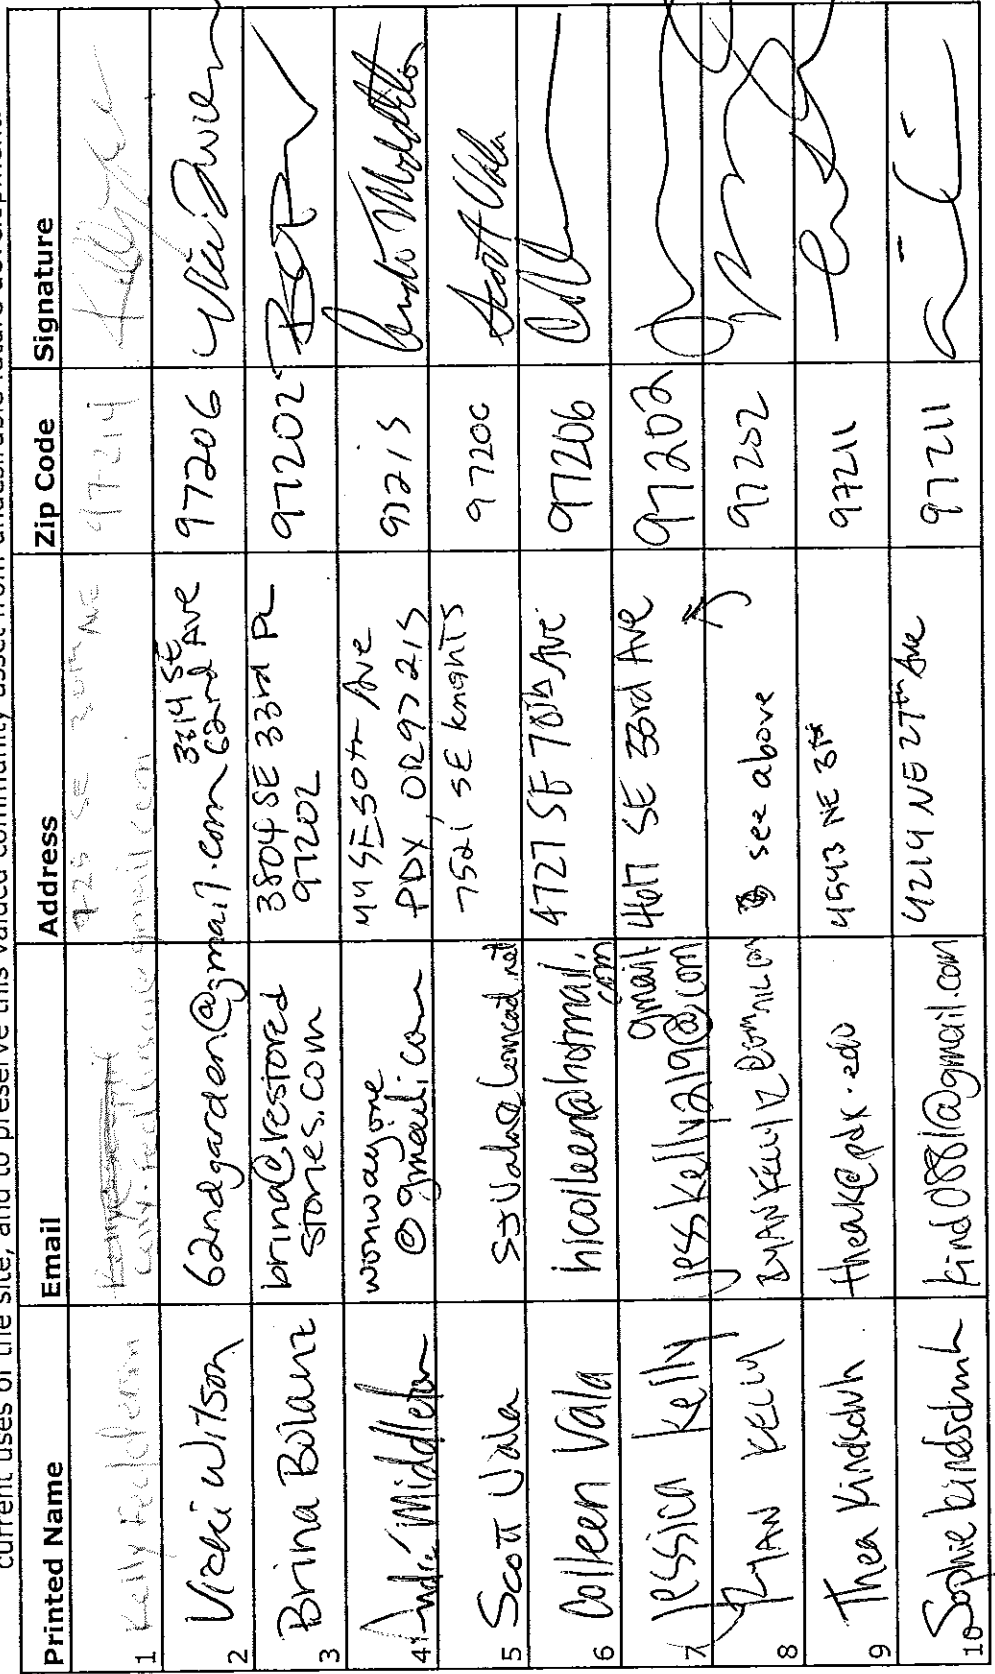 current uses of the site, and to preserve this valued community asset from undesirable future development.
Printed Name Email Address Zip Code Signature
1 Kelly 925 SE 30th Ave 97214
2 Vicki Wilson 62ndgarden@gmail.com 3314 SE 62nd Ave 97206
3 Brina Bolanz brina@restored stones.com 3804 SE 33rd PL 97202 97202
4 André Middleton wonwayone @gmail.com 44 SE 50th Ave PDX, OR 97215 97215
5 Scott Vala 7521 SE Knights 97206 Scott Vala
6 Colleen Vala hicolleen@hotmail.com 4727 SE 70th Ave 97206
7 Jessica Kelly jesskelly219@gmail.com SE 33rd Ave 97202
8 RYAN KELLY see above 97202
9 Thea Kindschuh Theak@pdx.edu 4543 NE 97211
10 Sophie Kindschuh kind0881@gmail.com 4214 NE 27th Ave 97211